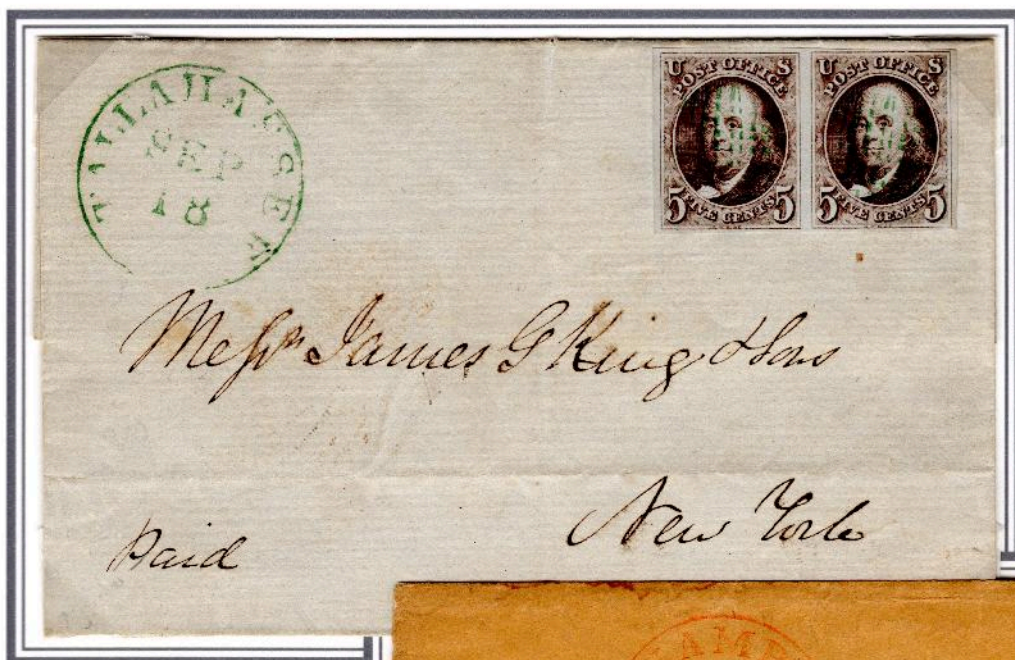 TALLAHASSEE
SEP
18
U S
POST OFFICE
5 FIVE CENTS 5
U S
POST OFFICE
5 FIVE CENTS 5
Messrs James G King & Sons
New York
Paid